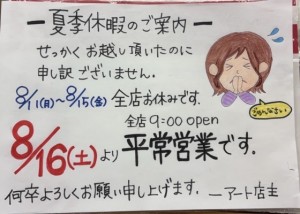 ー夏季休暇のご案内ー
せっかくお越し頂いたのに
申し訳ございません。
8/11(月)～8/15(金)全店お休みです.
全店 9:00 open
8/16(土)より平常営業です.
何卒よろしくお願い申し上げます. ―アート店主
ごめんなさい